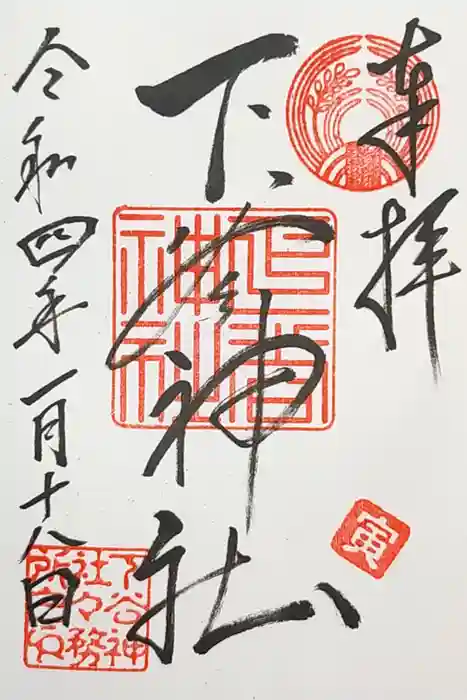 奉拝
下谷神社
下谷神社
寅
令和四年一月十八日
下谷神
社々務
所之印